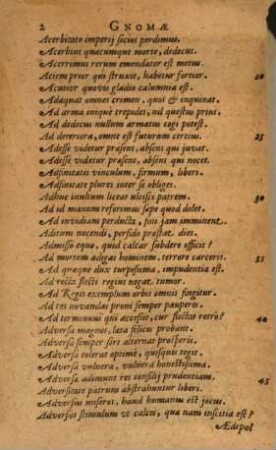 2 GNOMÆ
Acerbitate imperij socios perdimus.
Acerbius quacumque morte, dedecus.
Acerrimus rerum emendator est metus.
Aciem prior qui struxit, habetur fortior. 20
Acutior quovis gladio calumnia est.
Adæquat omnes cremen, quos & inquinat.
Ad arma cùmque trepides, nil questus prius.
Ad dedecus nullum armatus cogi potest.
Ad deteriora, omne est futurum certius. 25
Adesse videtur præsens, absens qui juvat.
Adesse videtur præsens, absens qui nocet.
Adfinitatis vinculum, firmum, liberi.
Adfinitate plures inter se obliges.
Adhuc inultum liceat ulcisci patrem. 30
Ad id maxumè referimus sæpe quod dolet.
Ad invidiam perducta, sors jam imminent.
Aditum nocendi, perfido præstat dies.
Admisso equo, quid calcar subdere officit?
Ad mortem adigas hominem, terrore carceris. 35
Ad quæque dux turpissima, impudentia est.
Ad rectè flecti reges negat tumor.
Ad Reges exemplum orbis omnis fingitur.
Ad res novandas proni semper pauperes.
Ad terminum qui accessit, cur flectat retrò? 40
Adversa magnos, læta felices probant.
Adversa semper fors alternat prosperis.
Adversa tolerat optimè, quisquis tegit.
Adversa vulnera, vulnera honestissima.
Adversa adimunt res consilij prudentiam. 45
Adversitate patrum abstrahuntur liberi.
Adversus miseros, haud humanus est jocus.
Adversus stimulum ut calces, quæ nam inscitia est?
Ædepol